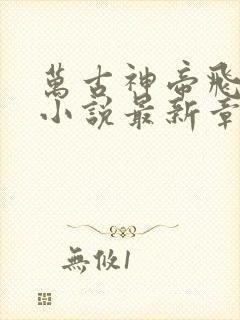 萬古神帝飛
小說最新章
無攸1